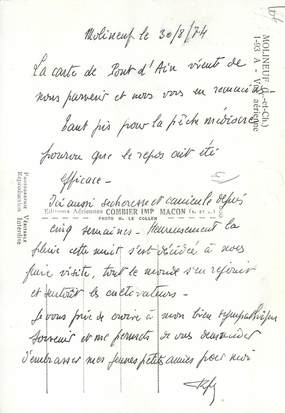 Molineuf le 30/8/74
La carte de Pont d'Ain vient de
nous parvenir et nous vous en remercions
Tant pis pour la pêche médiocre
pourvu que le repos ait été
efficace -
Ici aussi secheresse et canicule depuis
cinq semaines - Heureusement la
pluie cette nuit s'est décidée à nous
faire visite, tout le monde s'en réjouit
et surtout les cultivateurs -
Je vous prie de croire à mon bien sympathique
souvenir et me permets de vous demander
d'embrasser mes jeunes petits amies pour moi
MOLINEUF (L.-et-Ch.)
1-93 A - Vue aérienne
Editions Aériennes COMBIER IMP MACON (S. et L.)
PHOTO H. LE COLLEN
Photographie Véritable
Reproduction Interdite